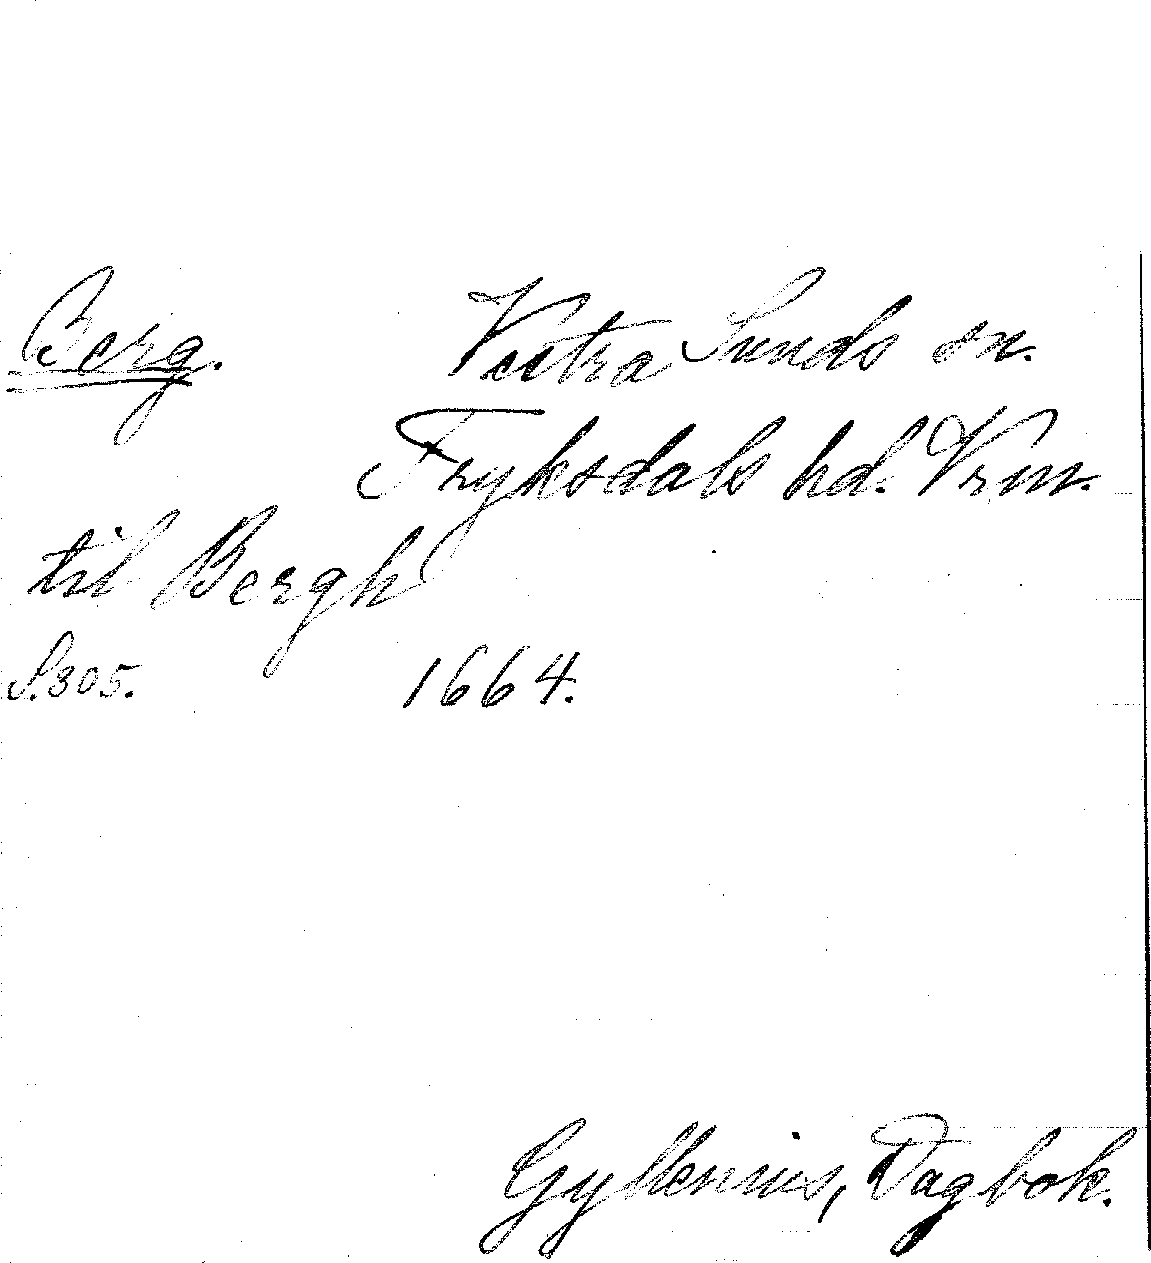 Berg. Vestra Sunds sn.
Fryksdals hd. Vrm.
til Bergh
S. 305. 1664.
Gyllenius, Dagbok.